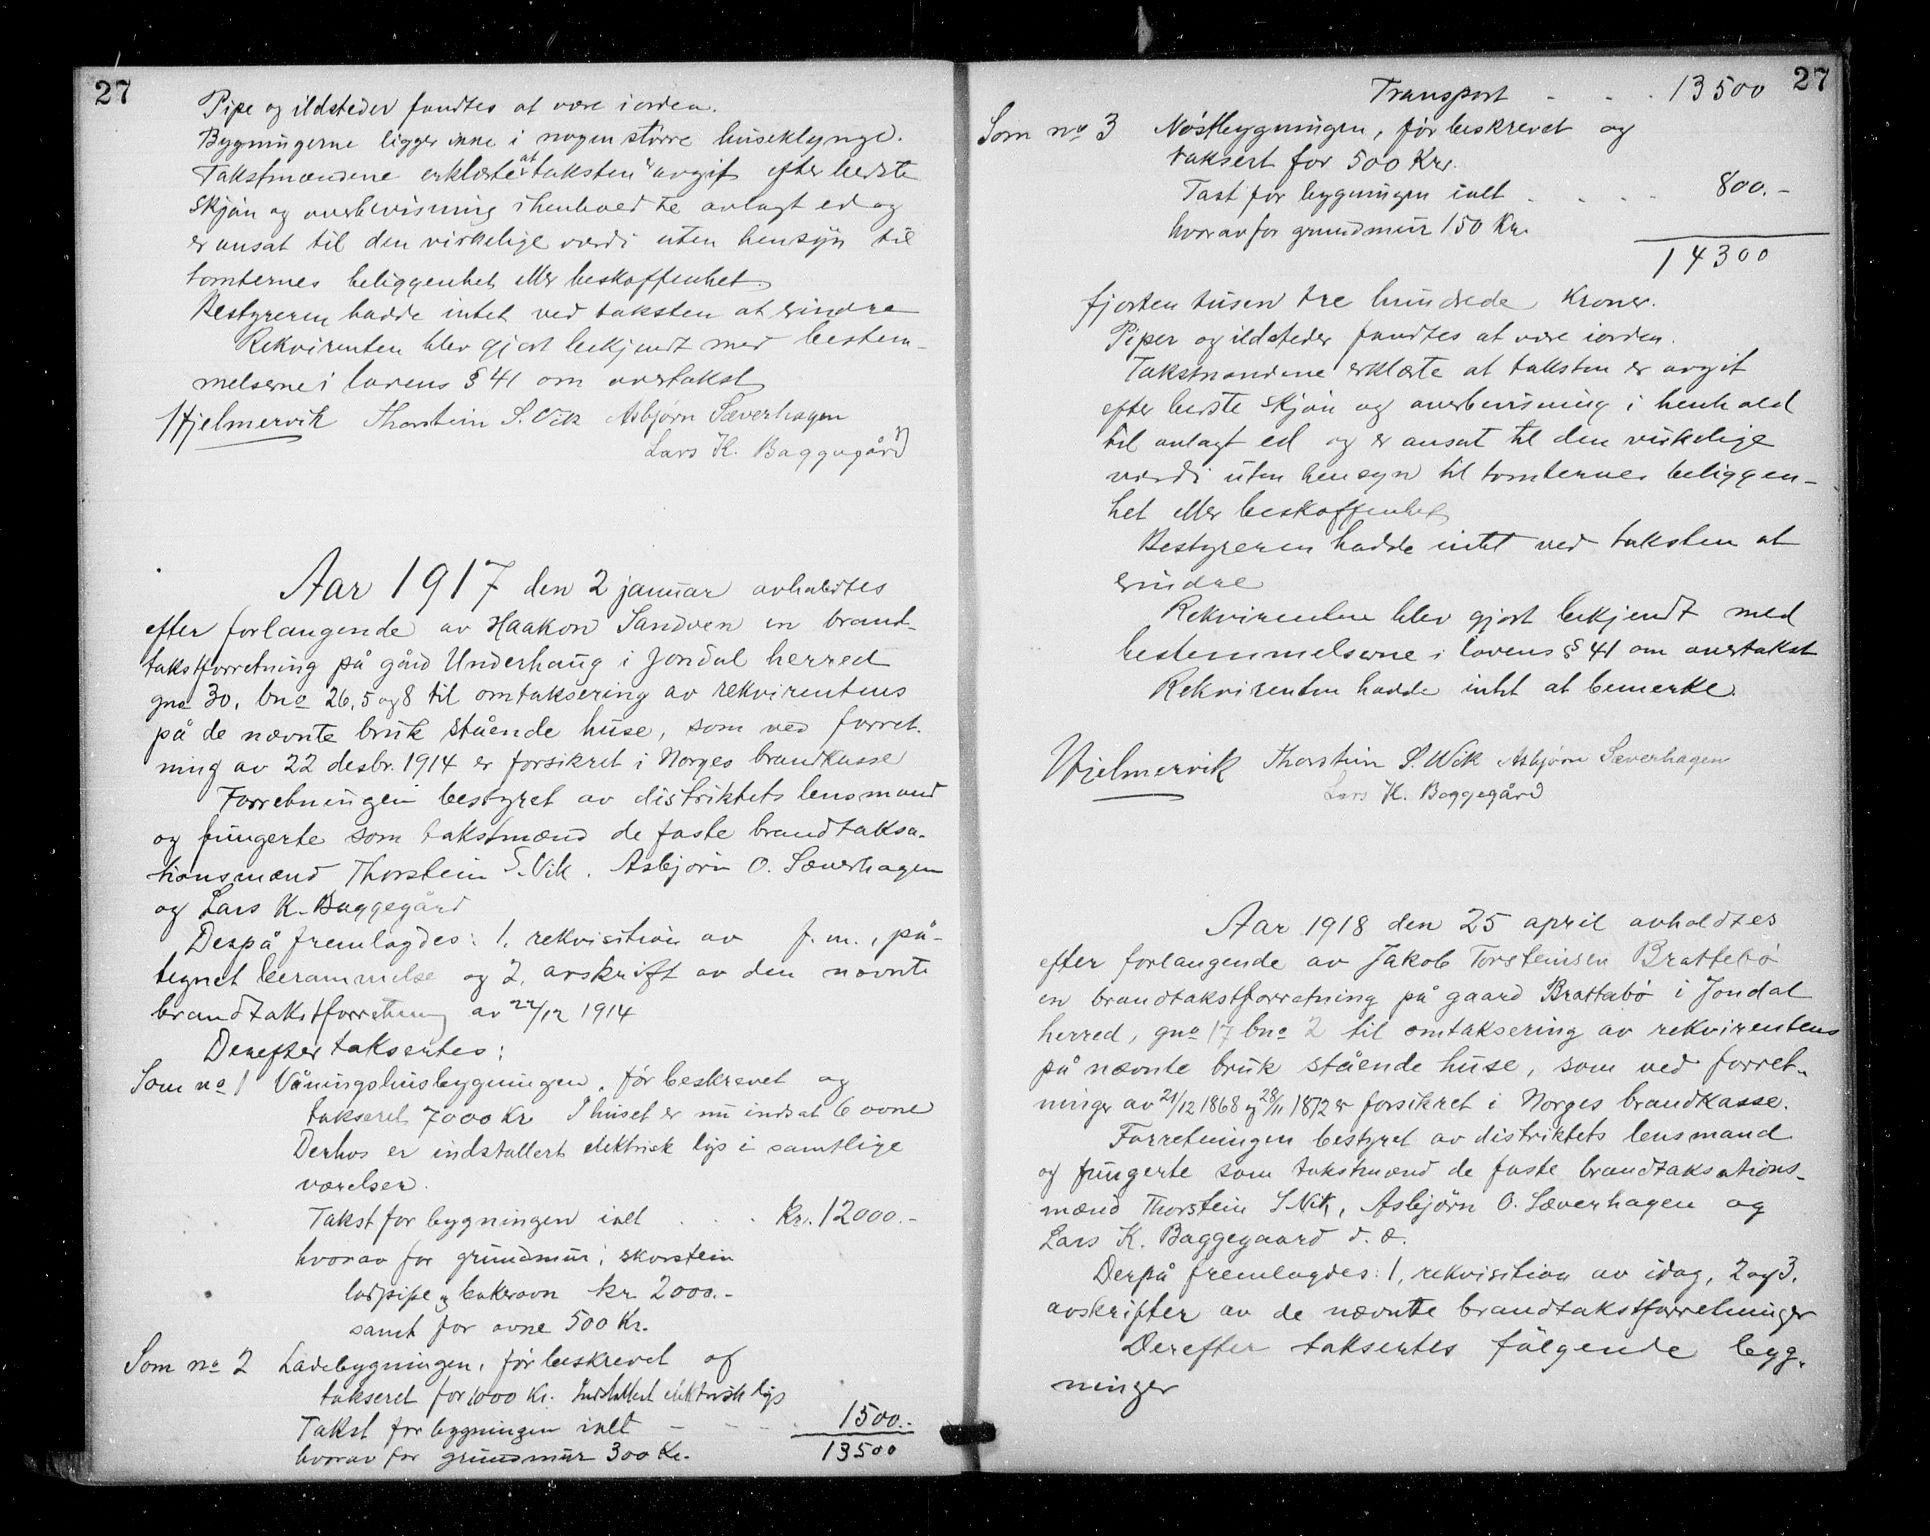 27
Pipe og ildsteder fandtes at være iorden.
Bygningerne ligger inne i nogen större huseklynge.
Takstmændene erklærte at taksten er avgit efter bedste
skjön og overbevisning i henhold til avlagt ed og
er ansat til den virkelige værdi uten hensÿn til
tomternes beliggenhet eller beskaffenhet.
Bestyreren hadde intet ved taksten at erindre
Rekvirenten blev gjort bekjendt med bestem-
melserne i lovens § 41 om overtakst
Hjelmervik Thorstein S. Vik Asbjørn Sæverhagen
Lars K. Baggegård
Aar 1917 den 2 januar avholdtes
efter forlangende av Haakon Sandven en brand-
takstforretning på gård Underhaug i Jondal herred
gno 30, bno 26, 5 og 8 til omtaksering av rekvirentens
på de nævnte bruk stående huse, som ved forret-
ning av 22 desbr. 1914 er forsikret i Norges brandkasse
Forretningen bestyret av distriktets lensmand
og fungerte som takstmænd de faste brandtaksa-
tionsmænd Thorstein S. Vik, Asbjörn O. Sæverhagen
og Lars K. Baggegård
Derpå fremlagdes: 1. rekvisition av f. m., på-
tegnet berammelse og 2. avskrift av den nævnte
brandtakstforretning av 22/12 1914
Derefter taksertes:
Som no 1 Våningshusbygningen, för beskrevet og
takseret 7000 Kr I huset er nu indsat 6 ovne
Derhos er indstallert elektrisk lys i samtlige
værelser.
Takst for bygningen ialt . . . kr. 12000.-
hvorav for grundmur, skorstein
ladpipe og bakerovn kr 2000.-
samt for ovne 500 Kr.
Som no 2 Ladebygningen, för beskrevet og
takseret for 1000 Kr. Indstallert elektrisk lys
Takst for bygningen ialt - - - 1500.-
hvorav for grundmur 300 Kr. 13500
27
Transport - - - 13500
Som no 3 Nöstbygningen, för beskrevet og
taksert for 500 Kr.
Tast for bygningen ialt . . . . 800.-
hvorav for grundmur 150 Kr.
14300
fjorten tusen tre hundrede Kroner.
Piper og ildsteder fandtes at være iorden.
Takstmændene erklærte at taksten er avgit
efter bedste skjön og overbevisning i henhold
til avlagt ed og er ansat til den virkelige
værdi uten hensyn til tomternes beliggen-
het eller beskaffenhet
Bestyreren hadde intet ved taksten at
erindre
Rekvirenten blev gjort bekjendt med
bestemmelserne i lovens § 41 om overtakst
Rekvirenten hadde intet at bemerke.
Hjelmervik Thorstein S. Wik Asbjørn Sæverhagen
Lars K. Baggegård
Aar 1918 den 25 april avholdtes
efter forlangende av Jakob Torsteinsen Brattebö
en brandtakstforretning på gaard Brattabö i Jondal
herred, gno 17 bno 2 til omtaksering av rekvirentens
på nævnte bruk stående huse, som ved forret-
ninger av 21/12 1868 og 28/11 1872 er forsikret i Norges brandkasse.
Forretningen bestyret av distriktets lensmand
og fungerte som takstmænd de faste brandtaksations-
mænd Thorstein S Vik, Asbjörn O. Sæverhagen og
Lars K. Baggegaard d. æ.
Derpå fremlagdes: 1, rekvisition av idag, 2 og 3.
avskrifter av de nævnte brandtakstforretninger
Derefter taksertes fölgende byg-
ninger